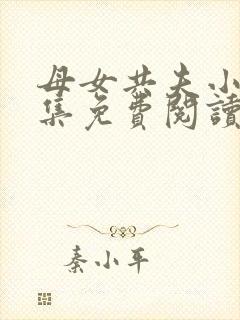 母女共夫小
集免費閱讀
秦小平